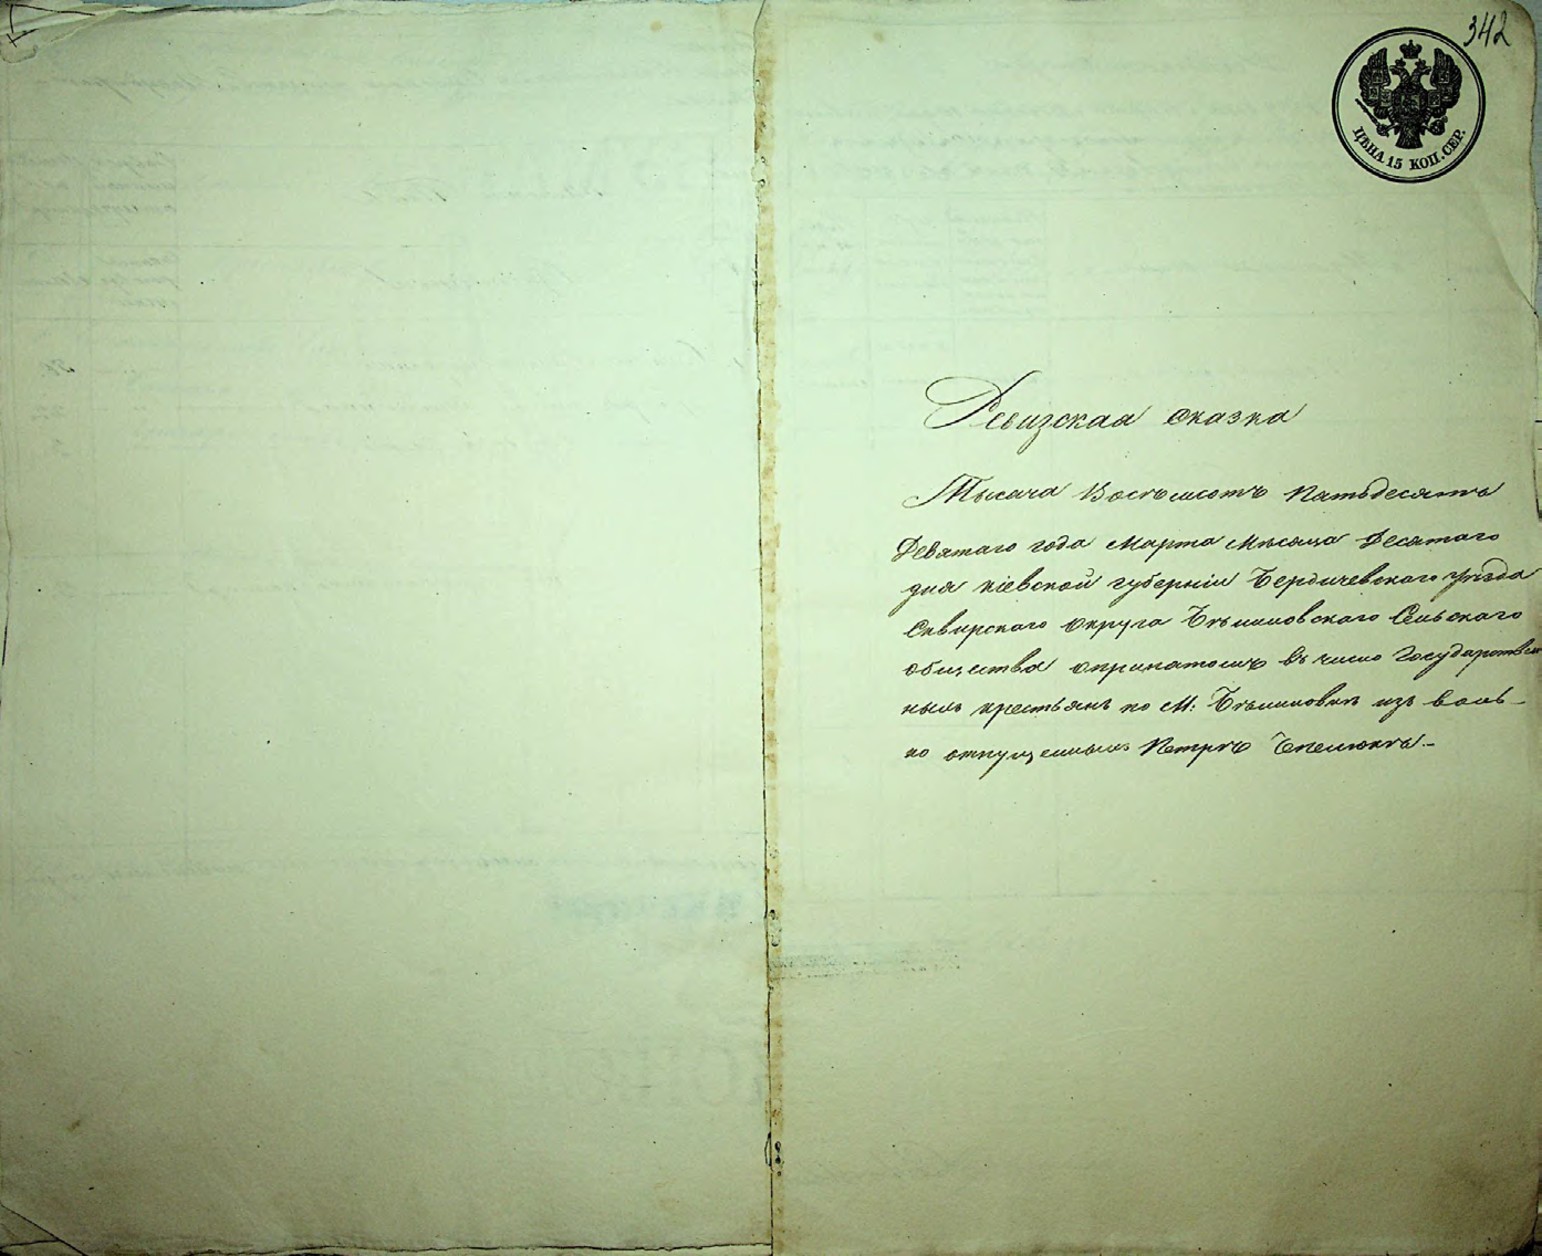 342
ЦѢНА 15 КОП. СЕР.
Ревизская сказка
Тысяча Восемьсотъ Пятьдесятъ
Девятаго года Марта Мѣсяца Десятаго
дня Кіевской губерніи Бердичевскаго уѣзда
Сквирскаго Округа Сельскаго
общества о принятомъ въ число Государствен
ныхъ крестьянъ по М: изъ воль-
но отпущенныхъ Петрѣ